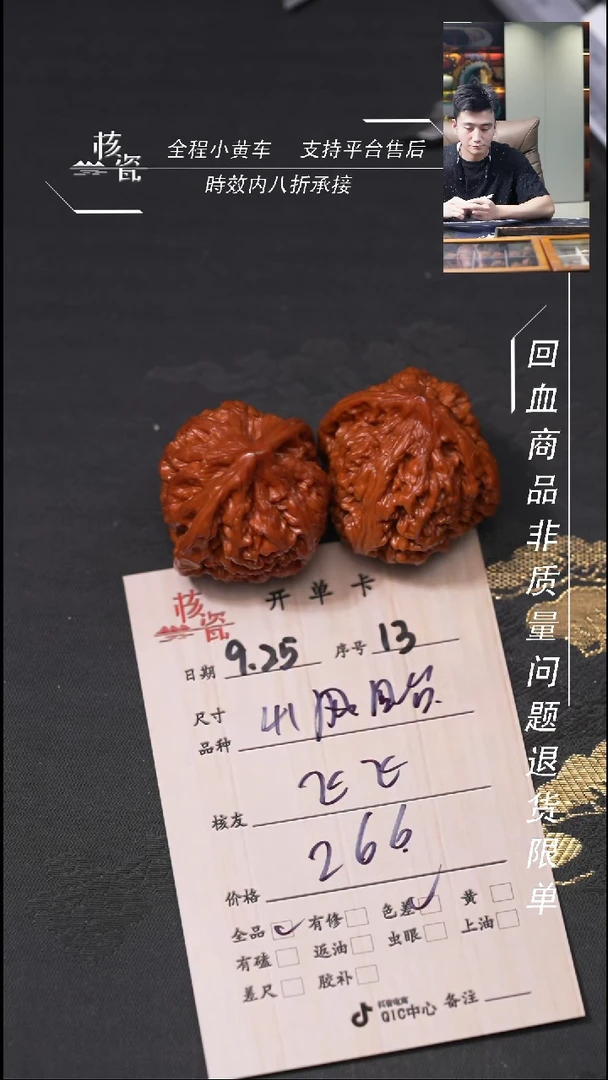 核瓷
全程小黄车 支持平台售后
時效内八折承接
回血商品非质量问题退货限单
核瓷 开单卡
日期 9.25 序号 13
尺寸
品种 41
核友 飞飞
价格 266
全品 有修 色差 黄
有磕 返油 虫眼 上油
差尺 胶补
抖音电商
QIC中心 备注